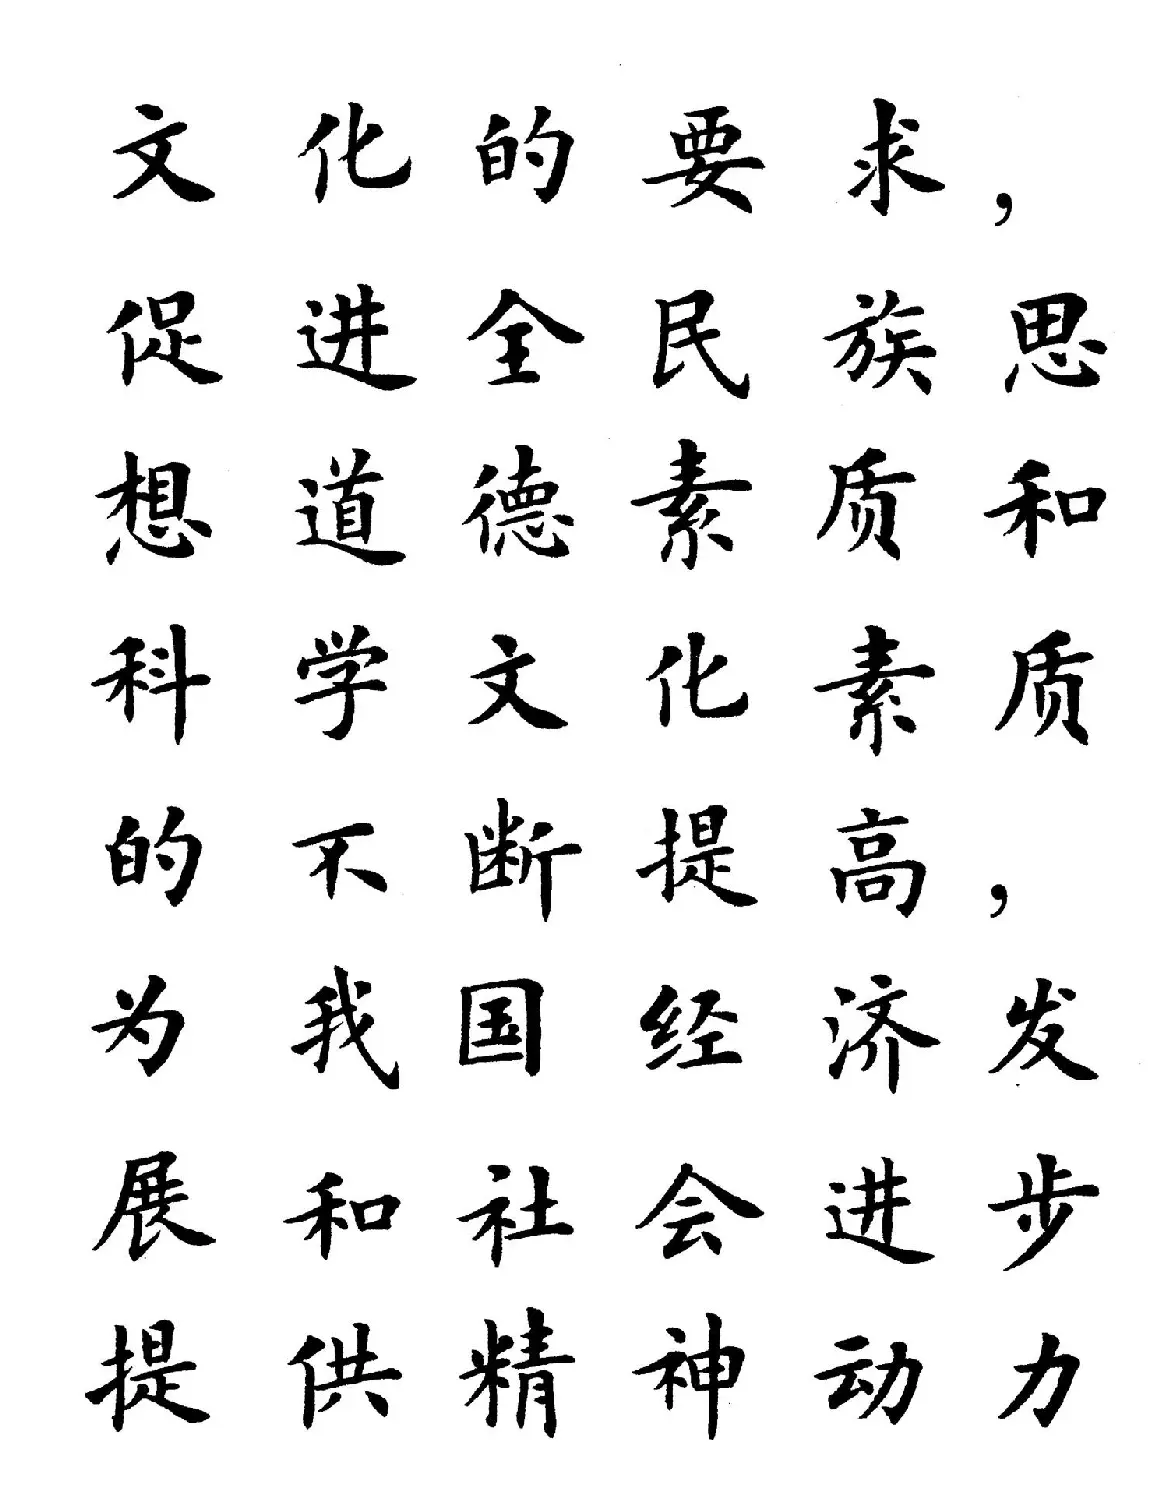 文化的要求，
促进全民族思
想道德素质和
科学文化素质
的不断提高，
为我国经济发
展和社会进步
提供精神动力